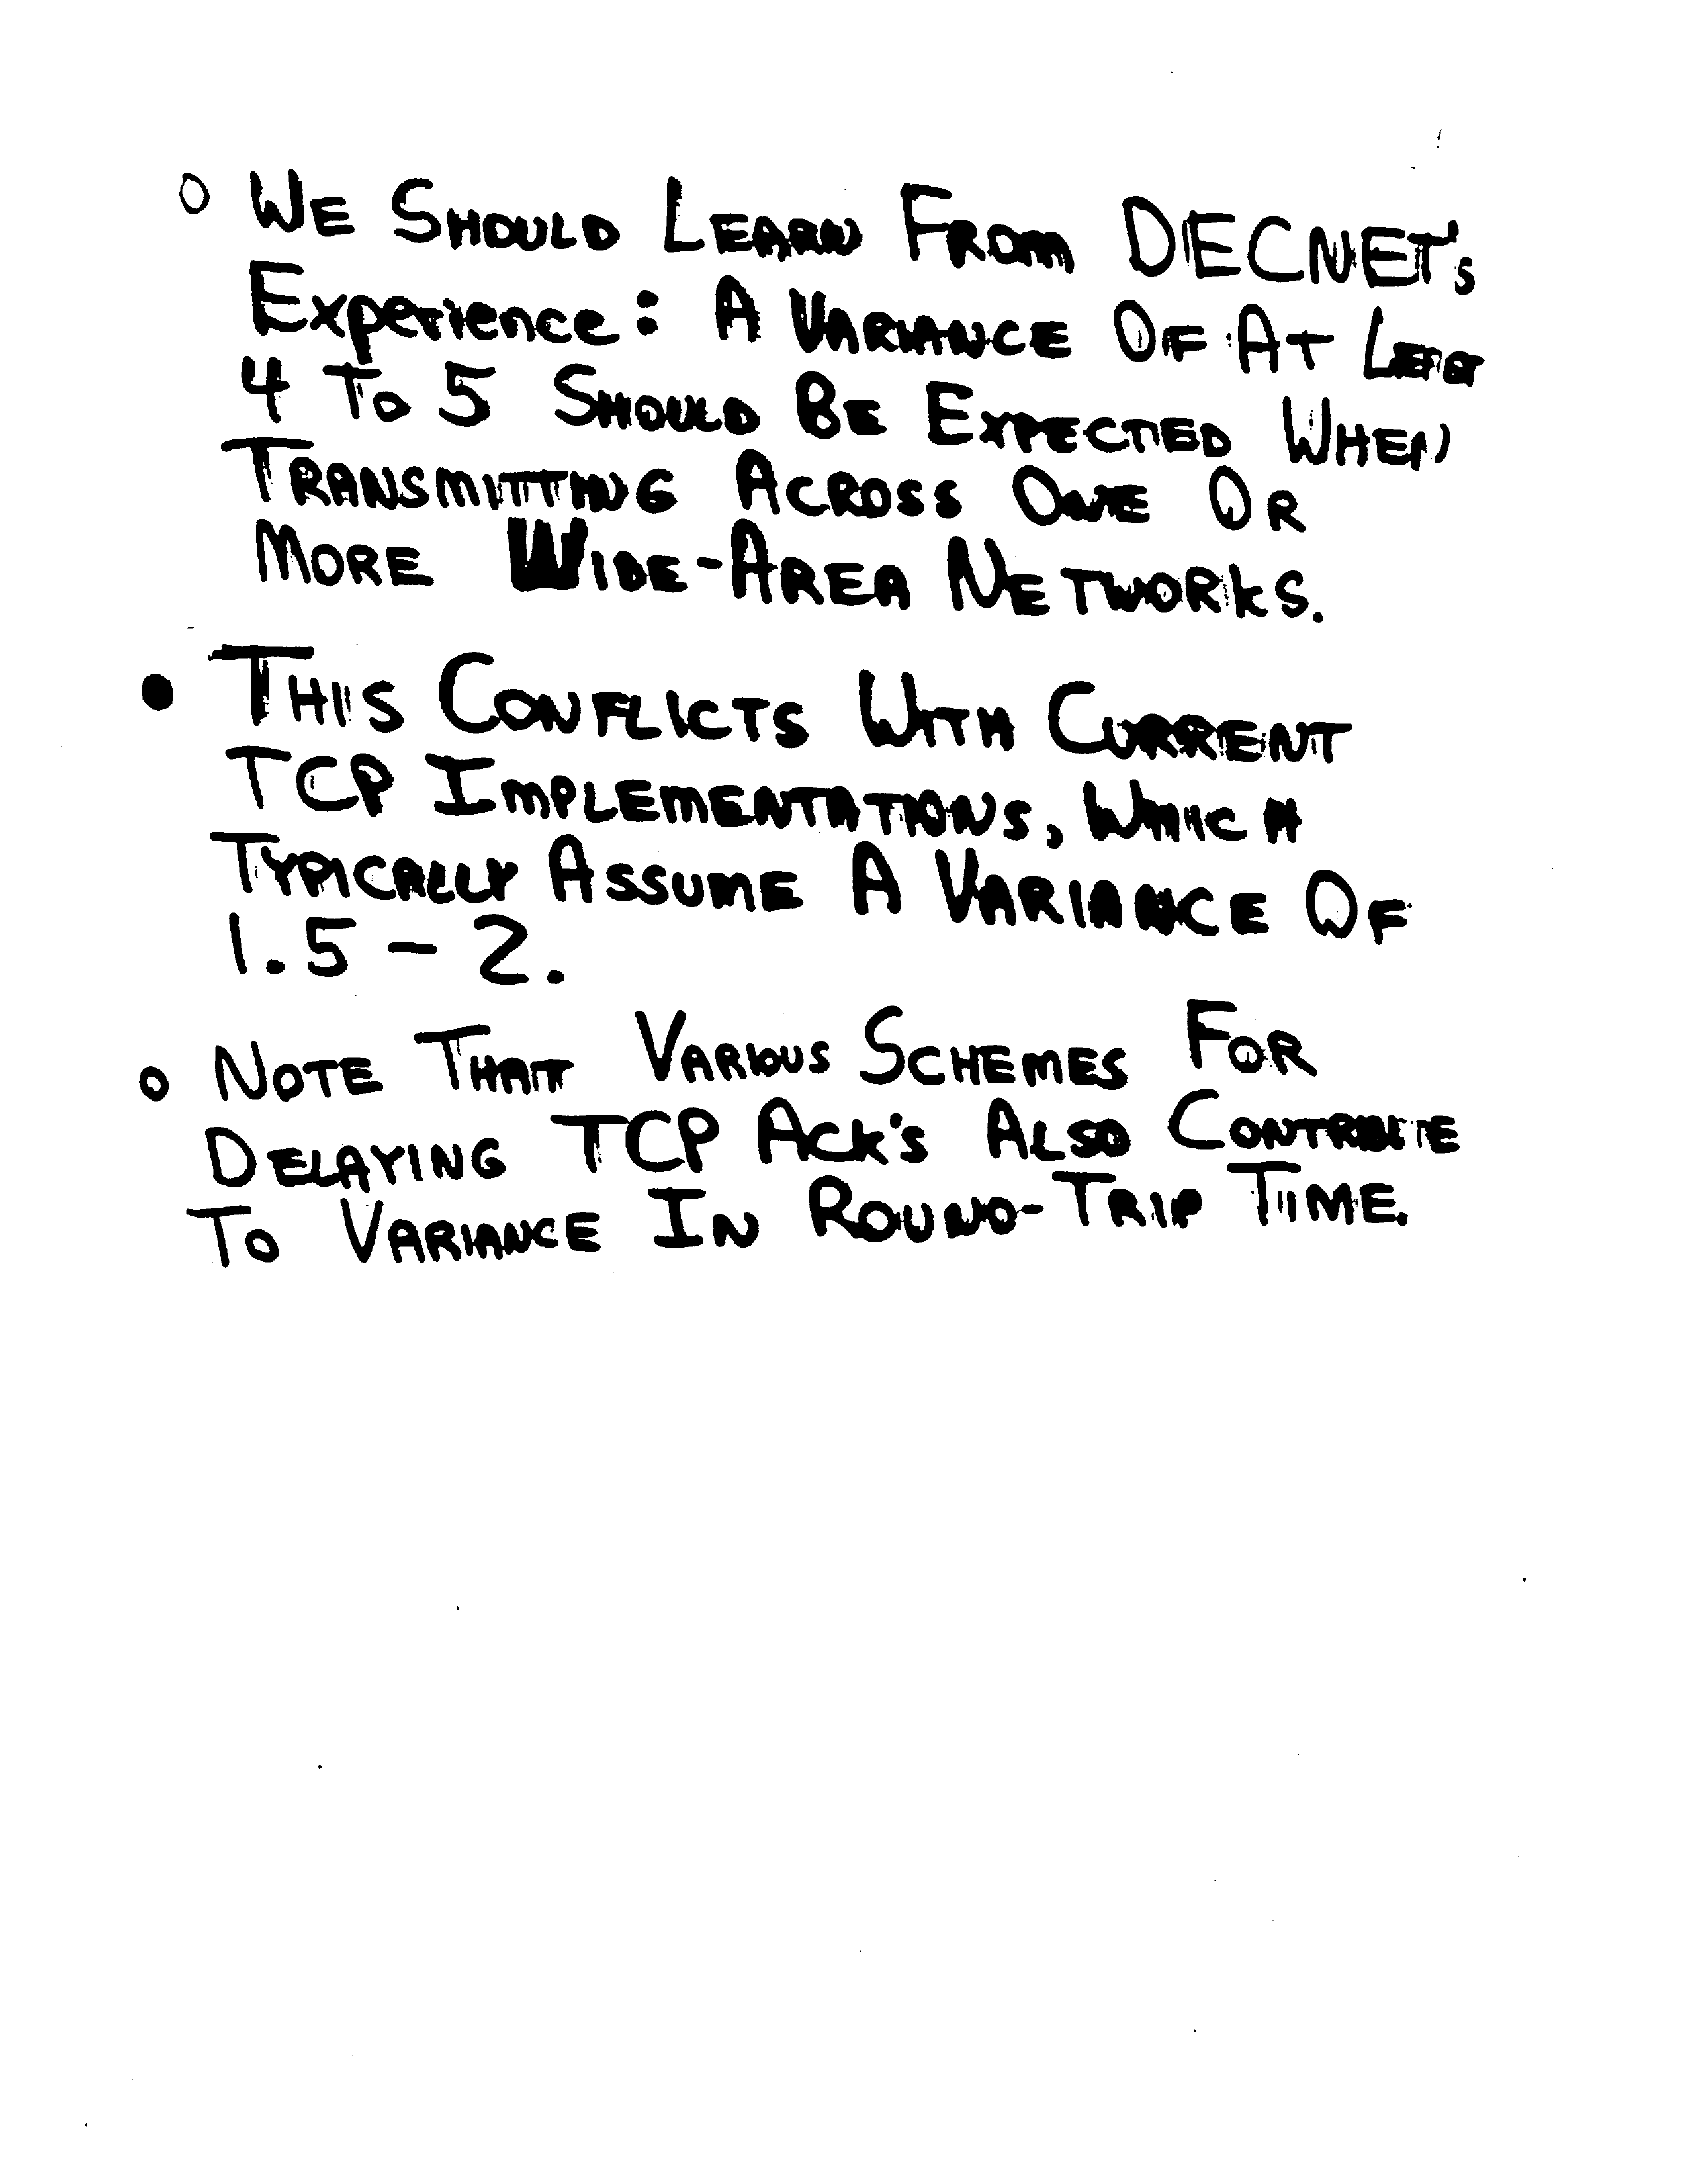 o We Should Learn From DECNET's
Experience: A Variance Of At Least
4 To 5 Should Be Expected When
Transmitting Across One Or
More Wide-Area Networks.
• This Conflicts With Current
TCP Implementations, Which
Typically Assume A Variance Of
1.5 - 2.
o Note That Various Schemes For
Delaying TCP Ack's Also Contribute
To Variance In Round-Trip Time.